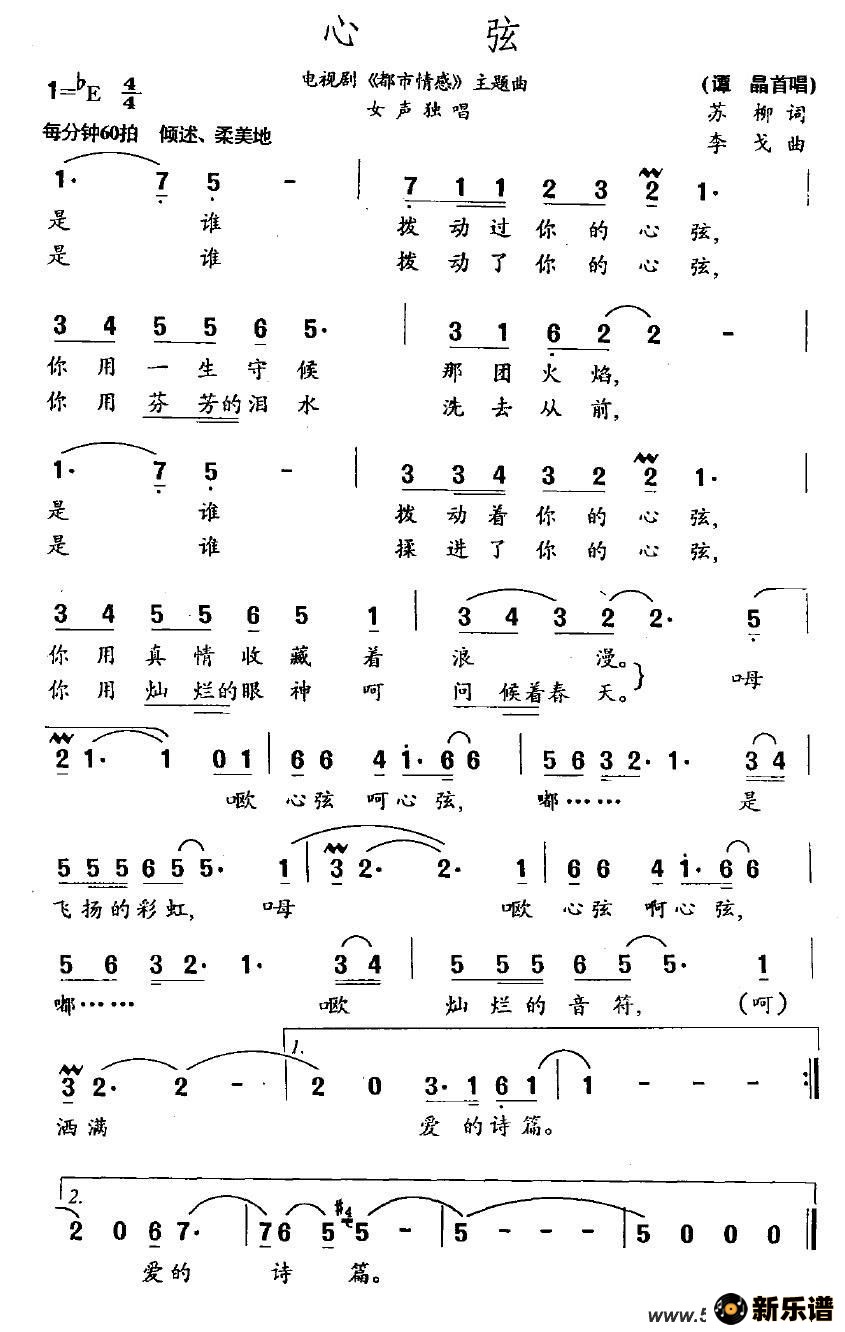 心 弦
电视剧《都市情感》主题曲
女声独唱
1=♭E 4/4
(谭 晶首唱)
苏 柳 词
李 戈 曲
每分钟60拍 倾述、柔美地
1· 7 5 - | 7 1 1 2 3 2 1· |
是 谁 拨 动 过 你 的 心 弦,
是 谁 拨 动 了 你 的 心 弦,
3 4 5 5 6 5· | 3 1 6 2 2 - |
你 用 一 生 守 候 那 团 火 焰,
你 用 芬 芳 的 泪 水 洗 去 从 前,
1· 7 5 - | 3 3 4 3 2 2 1· |
是 谁 拨 动 着 你 的 心 弦,
是 谁 揉 进 了 你 的 心 弦,
3 4 5 5 6 5 1 | 3 4 3 2 2· 5 |
你 用 真 情 收 藏 着 浪 漫。
你 用 灿 烂 的 眼 神 呵 问 候 着 春 天。 } 呣
2 1· 1 0 1 | 6 6 4 1· 6 6 | 5 6 3 2· 1· 3 4 |
呕 心 弦 呵 心 弦, 嘟…… 是
5 5 5 6 5 5· 1 | 3 2· 2· 1 | 6 6 4 1· 6 6 |
飞 扬 的 彩 虹, 呣 呕 心 弦 啊 心 弦,
5 6 3 2· 1· 3 4 | 5 5 5 6 5 5· 1 |
嘟…… 呕 灿 烂 的 音 符, (呵)
1.
3 2· 2 - - | 2 0 3· 1 6 1 | 1 - - - :|
洒 满 爱 的 诗 篇。
2.
2 0 6 7· | 7 6 5 #4 5 - - | 5 - - - | 5 0 0 0 |
爱 的 诗 篇。
www.5
新乐谱